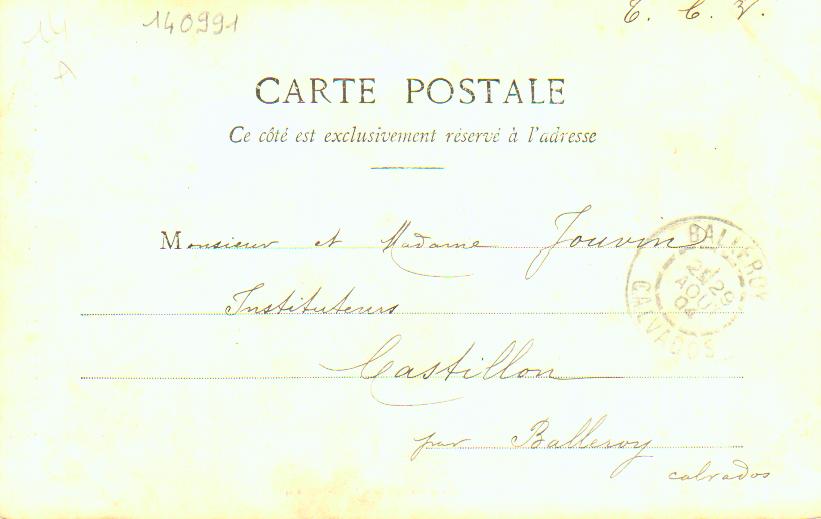 14
A
140991
T. C. V.
CARTE POSTALE
Ce côté est exclusivement réservé à l'adresse
Monsieur et Madame Jouvin
Instituteurs
Castillon
par Balleroy
calvados
BALLEROY
2E
29
AOUT
04
CALVADOS